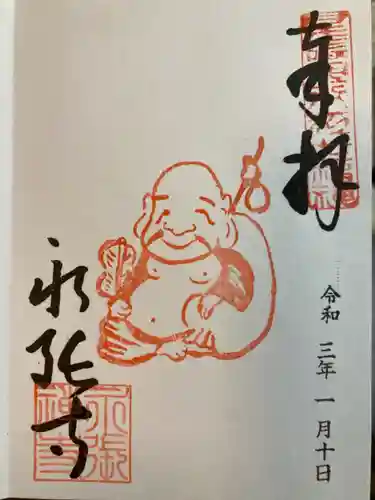 奉拝
令和 三年 一月十日
永張寺
永張
禅寺